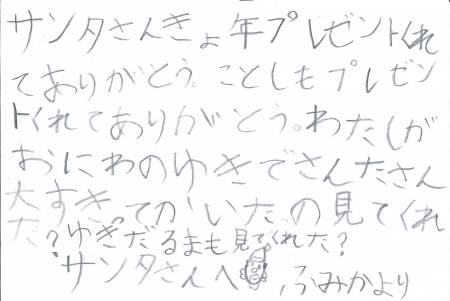 サンタさんきょ年プレゼントくれ
てありがとう。ことしもプレゼン
トくれてありがとう。わたしが
おにわのゆきでさんたさん
大すきってかいたの見てくれ
た?ゆきだるまも見てくれた?
サンタさんへ ふみかより